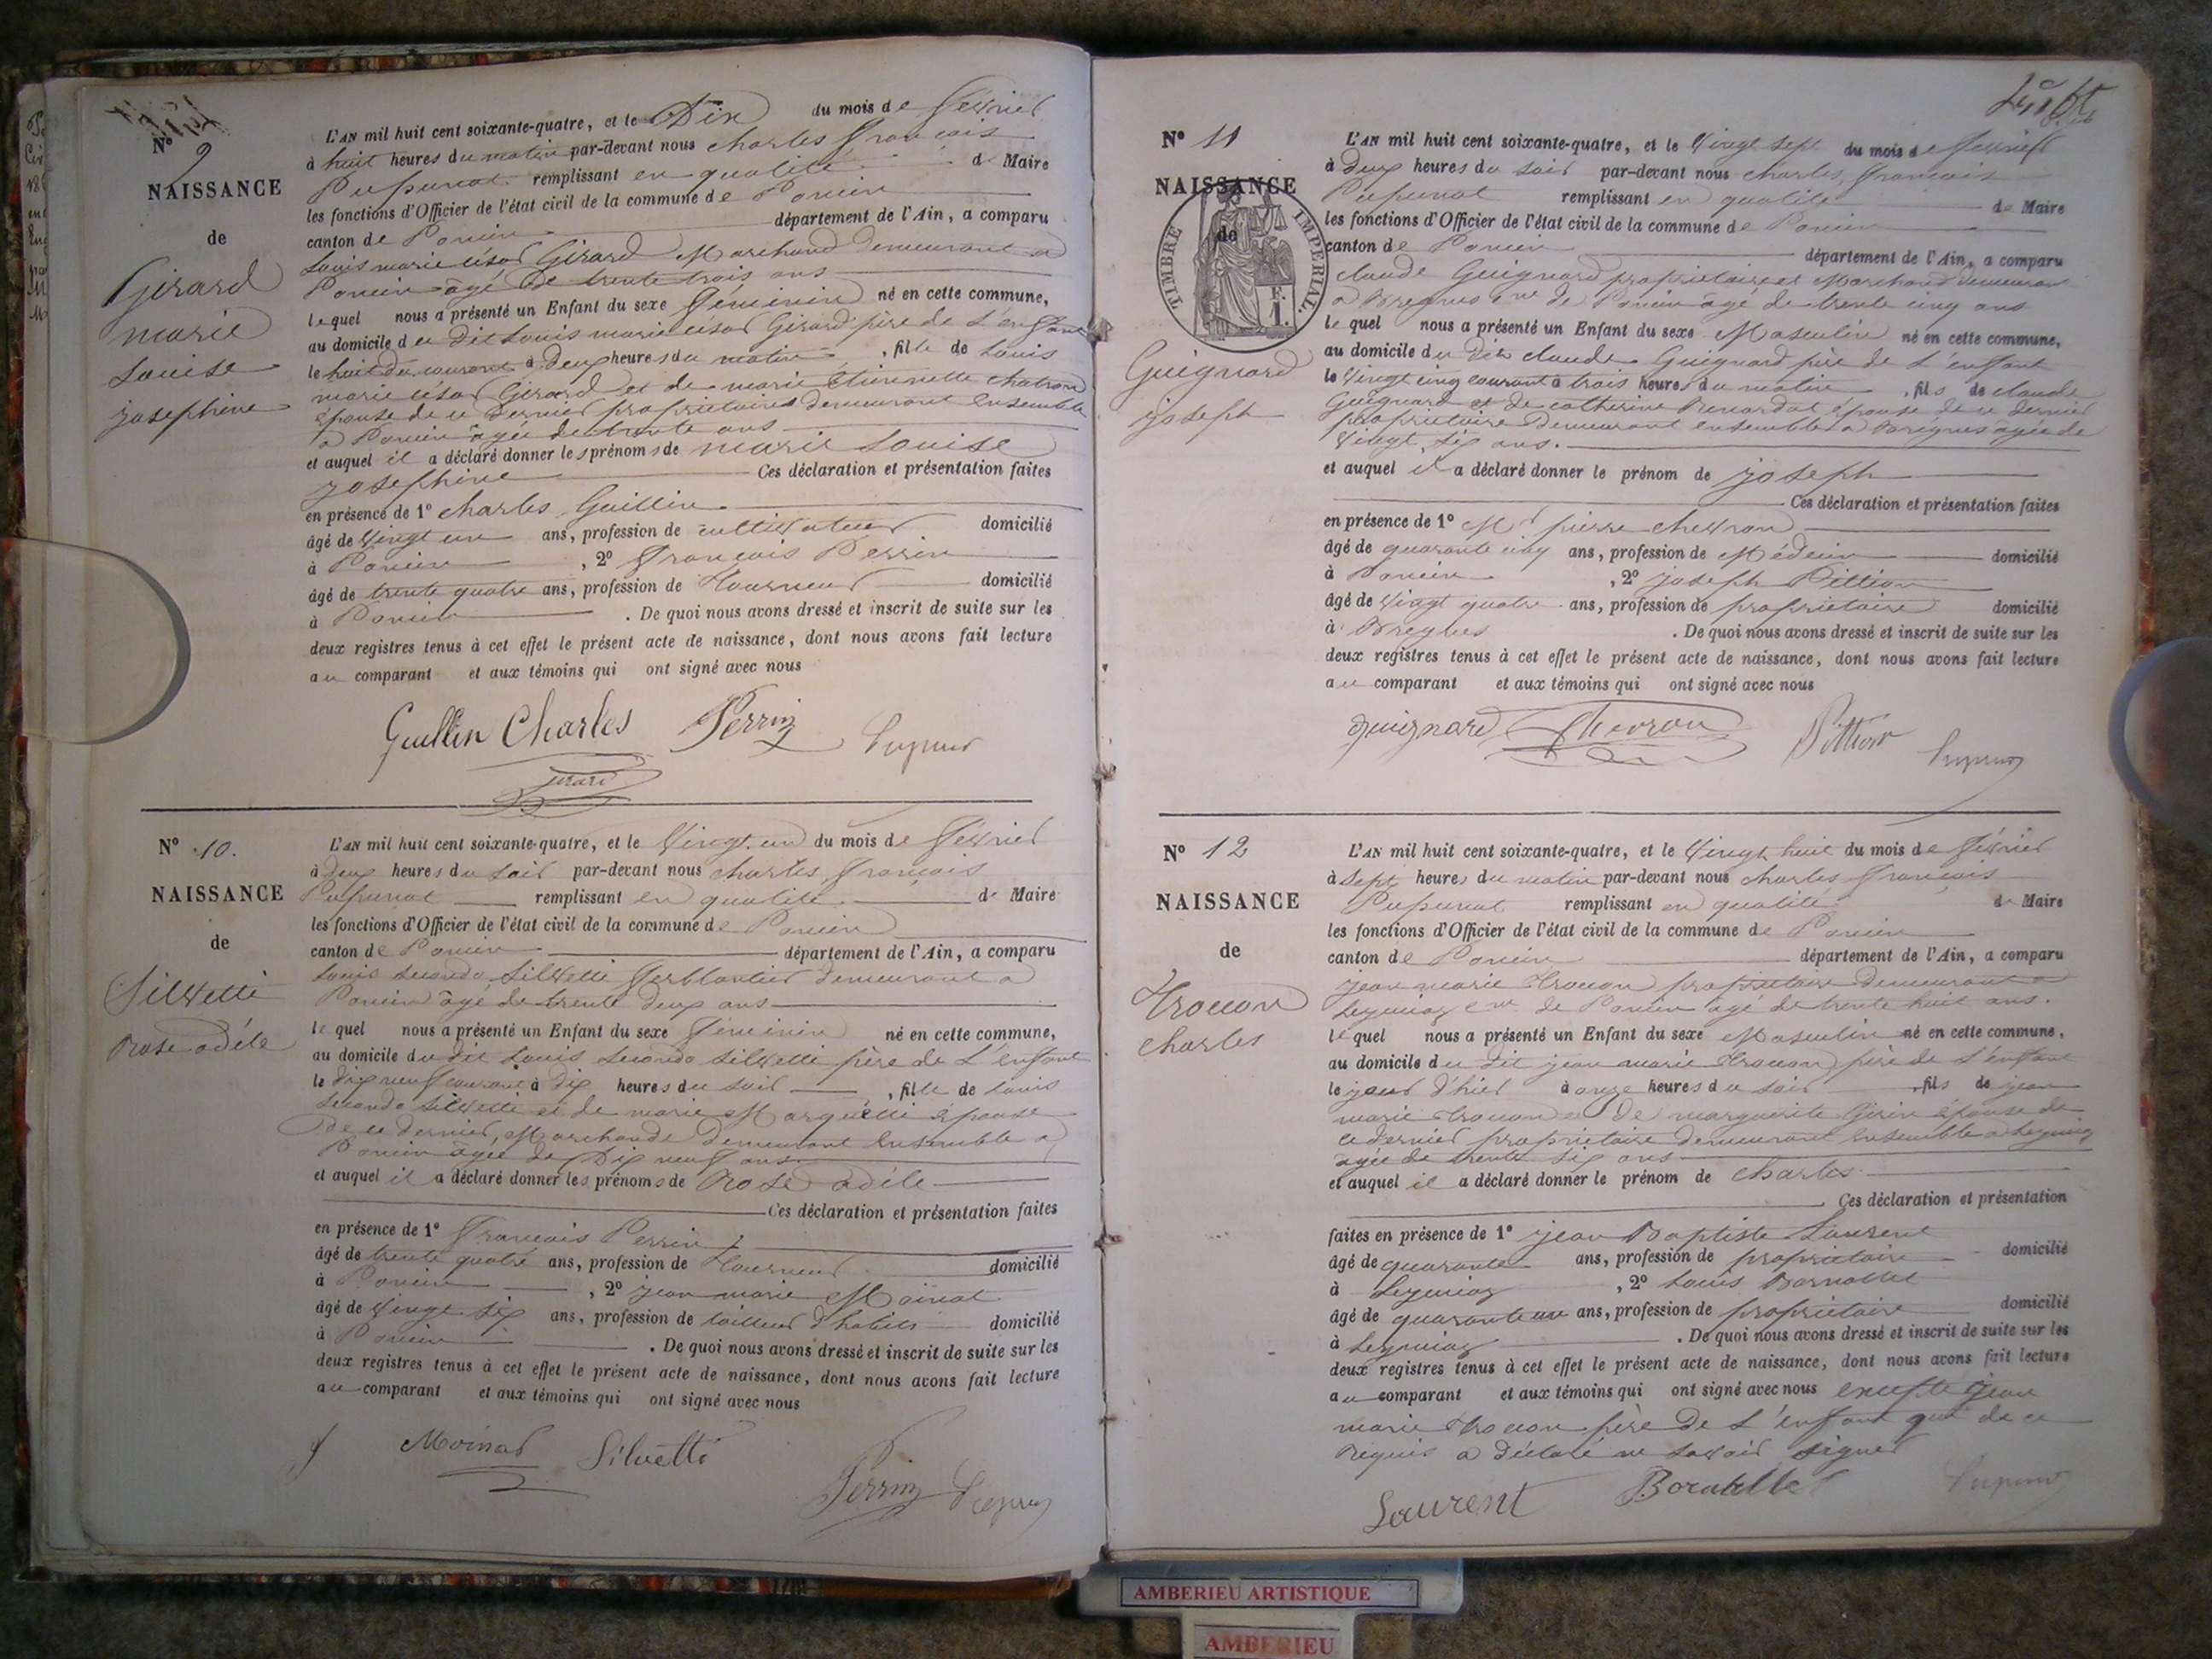 N° 9
NAISSANCE
de
Girard
marie
Louise
josephine
L'AN mil huit cent soixante-quatre, et le Dix du mois de février
à huit heures du matin par-devant nous charles françois
Pupunat remplissant en qualité de Maire
les fonctions d'Officier de l'état civil de la commune de Poncin
canton de Poncin département de l'Ain, a comparu
Louis marie césar Girard Marchand demeurant a
Poncin âgé de trente trois ans
lequel nous a présenté un Enfant du sexe féminin né en cette commune,
au domicile du dit Louis marie césar Girard père de L'enfant
le huit du courant à Deux heures du matin, fille de Louis
marie césar Girard et de marie Etiennette chatron
épouse de ce dernier propriétaires demeurant ensemble
a Poncin âgée de trente ans
et auquel il a déclaré donner les prénoms de marie Louise
josephine Ces déclaration et présentation faites
en présence de 1° charles Guillin
âgé de vingt un ans, profession de cultivateur domicilié
à Poncin, 2° françois Perrin
âgé de trente quatre ans, profession de Tourneur domicilié
à Poncin. De quoi nous avons dressé et inscrit de suite sur les
deux registres tenus à cet effet le présent acte de naissance, dont nous avons fait lecture
au comparant et aux témoins qui ont signé avec nous
Guillin Charles Perrin Pupunat
Girard
N° 10.
NAISSANCE
de
Silvetti
Rose adéle
L'AN mil huit cent soixante-quatre, et le Vingt un du mois de février
à deux heures du soir par-devant nous charles françois
Pupunat remplissant en qualité de Maire
les fonctions d'Officier de l'état civil de la commune de Poncin
canton de Poncin département de l'Ain, a comparu
Louis secondo Silvetti ferblantier demeurant a
Poncin âgé de trente deux ans
lequel nous a présenté un Enfant du sexe féminin né en cette commune,
au domicile du dit Louis secondo Silvetti père de L'enfant
le dix neuf courant à dix heures du soir, fille de Louis
secondo Silvetti et de marie épouse
de ce dernier, Marchande demeurant ensemble a
Poncin âgée de Dix neuf ans
et auquel il a déclaré donner les prénoms de Rose adéle
Ces déclaration et présentation faites
en présence de 1° françois Perrin
âgé de trente quatre ans, profession de Tourneur domicilié
à Poncin, 2° jean marie Moinat
âgé de vingt six ans, profession de tailleur d'habits domicilié
à Poncin. De quoi nous avons dressé et inscrit de suite sur les
deux registres tenus à cet effet le présent acte de naissance, dont nous avons fait lecture
au comparant et aux témoins qui ont signé avec nous
Moinat Silvetti
Perrin Pupunat
N° 11
NAISSANCE
de
TIMBRE IMPERIAL.
F.
1.
Guignard
joseph
L'AN mil huit cent soixante-quatre, et le Vingt sept du mois de février
à Deux heures du soir par-devant nous charles françois
Pupunat remplissant en qualité de Maire
les fonctions d'Officier de l'état civil de la commune de Poncin
canton de Poncin département de l'Ain, a comparu
claude Guignard propriétaire et Marchand demeurant
a Bregnes cne de Poncin âgé de trente cinq ans
lequel nous a présenté un Enfant du sexe Masculin né en cette commune,
au domicile du dit claude Guignard père de L'enfant
le Vingt cinq courant à trois heures du matin, fils de claude
Guignard et de catherine Renardat épouse de ce dernier
propriétaire demeurant ensemble a Bregnes âgée de
Vingt six ans.
et auquel il a déclaré donner le prénom de joseph
Ces déclaration et présentation faites
en présence de 1° Mr pierre chevron
âgé de quarante cinq ans, profession de Médecin domicilié
à Poncin, 2° joseph Pittion
âgé de Vingt quatre ans, profession de propriétaire domicilié
à Bregnes. De quoi nous avons dressé et inscrit de suite sur les
deux registres tenus à cet effet le présent acte de naissance, dont nous avons fait lecture
au comparant et aux témoins qui ont signé avec nous
guignard Chevron Pittion Pupunat
N° 12
NAISSANCE
de
Trocon
charles
L'AN mil huit cent soixante-quatre, et le Vingt huit du mois de février
à Sept heures du matin par-devant nous charles françois
Pupunat remplissant en qualité de Maire
les fonctions d'Officier de l'état civil de la commune de Poncin
canton de Poncin département de l'Ain, a comparu
jean marie Trocon propriétaire demeurant a
Leymiaz cne de Poncin âgé de trente huit ans.
lequel nous a présenté un Enfant du sexe Masculin né en cette commune,
au domicile du dit jean marie Trocon père de L'enfant
le jour d'hier à onze heures du soir, fils de jean
marie Trocon et de marguerite Girin épouse de
ce dernier propriétaire demeurant ensemble a Leymiaz
âgée de trente six ans
et auquel il a déclaré donner le prénom de charles
Ces déclaration et présentation
faites en présence de 1° jean Baptiste Laurent
âgé de quarante ans, profession de propriétaire domicilié
à Leymiaz, 2° Louis Bornatlet
âgé de quarante un ans, profession de propriétaire domicilié
à Leymiaz. De quoi nous avons dressé et inscrit de suite sur les
deux registres tenus à cet effet le présent acte de naissance, dont nous avons fait lecture
au comparant et aux témoins qui ont signé avec nous excepté jean
marie Trocon père de L'enfant qui de ce
requis a déclaré ne savoir signer
Laurent Pupunat
AMBERIEU ARTISTIQUE
AMBERIEU